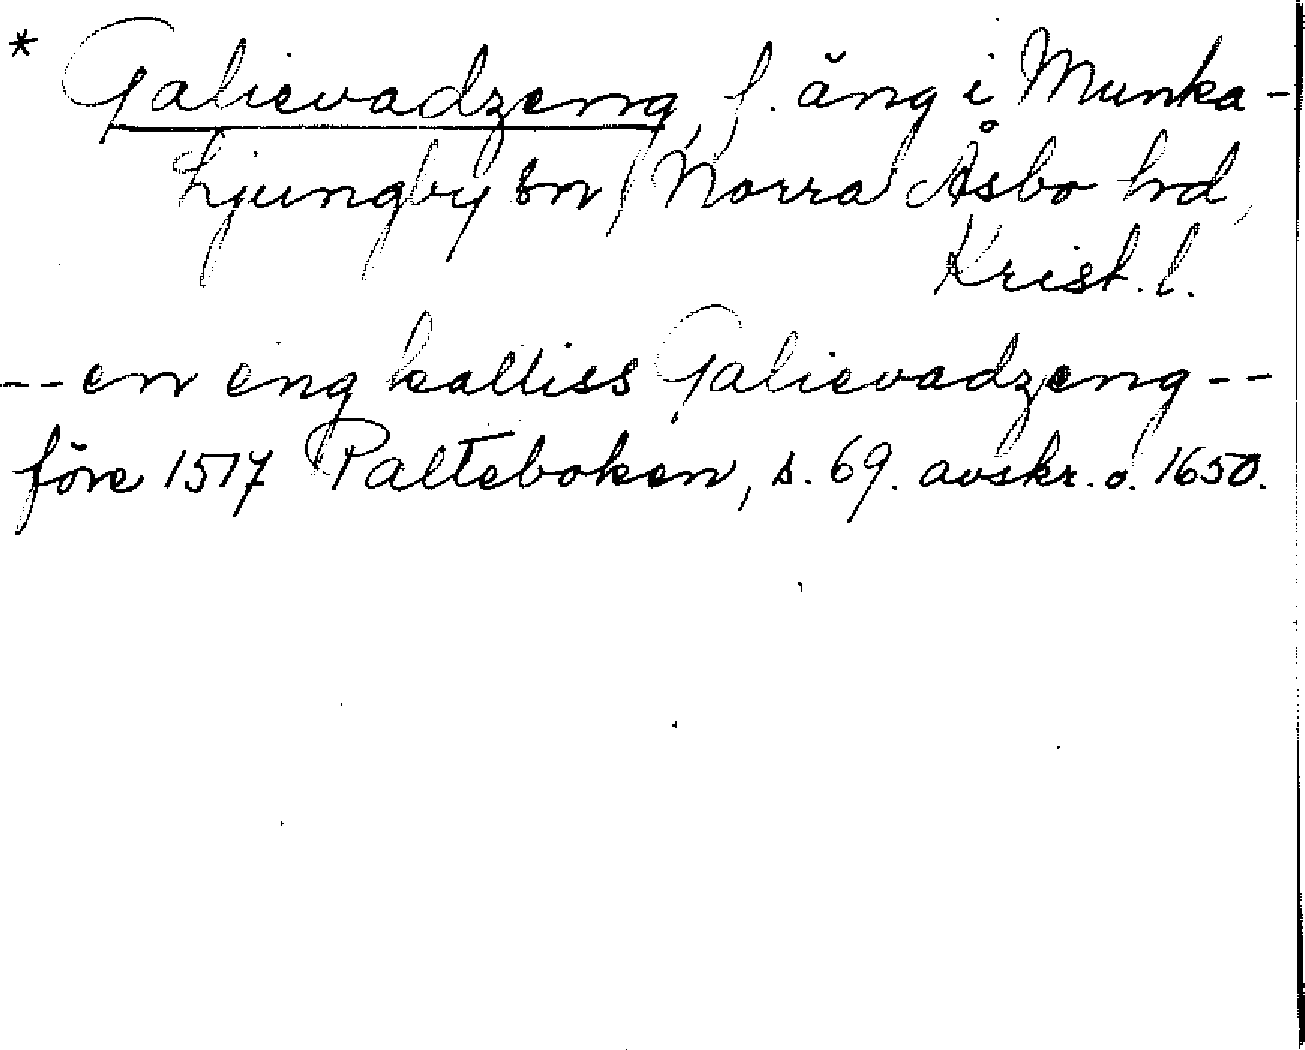 * Galievadzeng, f. äng i Munka-
Ljungby sn, Norra Åsbo hd,
Krist. l.
-- en eng kalliss Galievadzeng --
före 1517 Palteboken, s. 69. avskr. o. 1650.